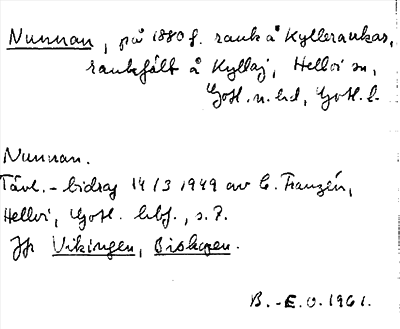 Nunnan, på 1880 f. rauk å Kylleraukar,
raukfält å Kyllaj, Hellvi sn,
Gotl. n. hd, Gotl. l.
Nunnan.
Tävl.-bidrag 14/3 1949 av C. Franzén,
Hellvi, Gotl. hbf., s. 7.
Jfr Vikingen, Biskopen.
B.-E. O. 1961.